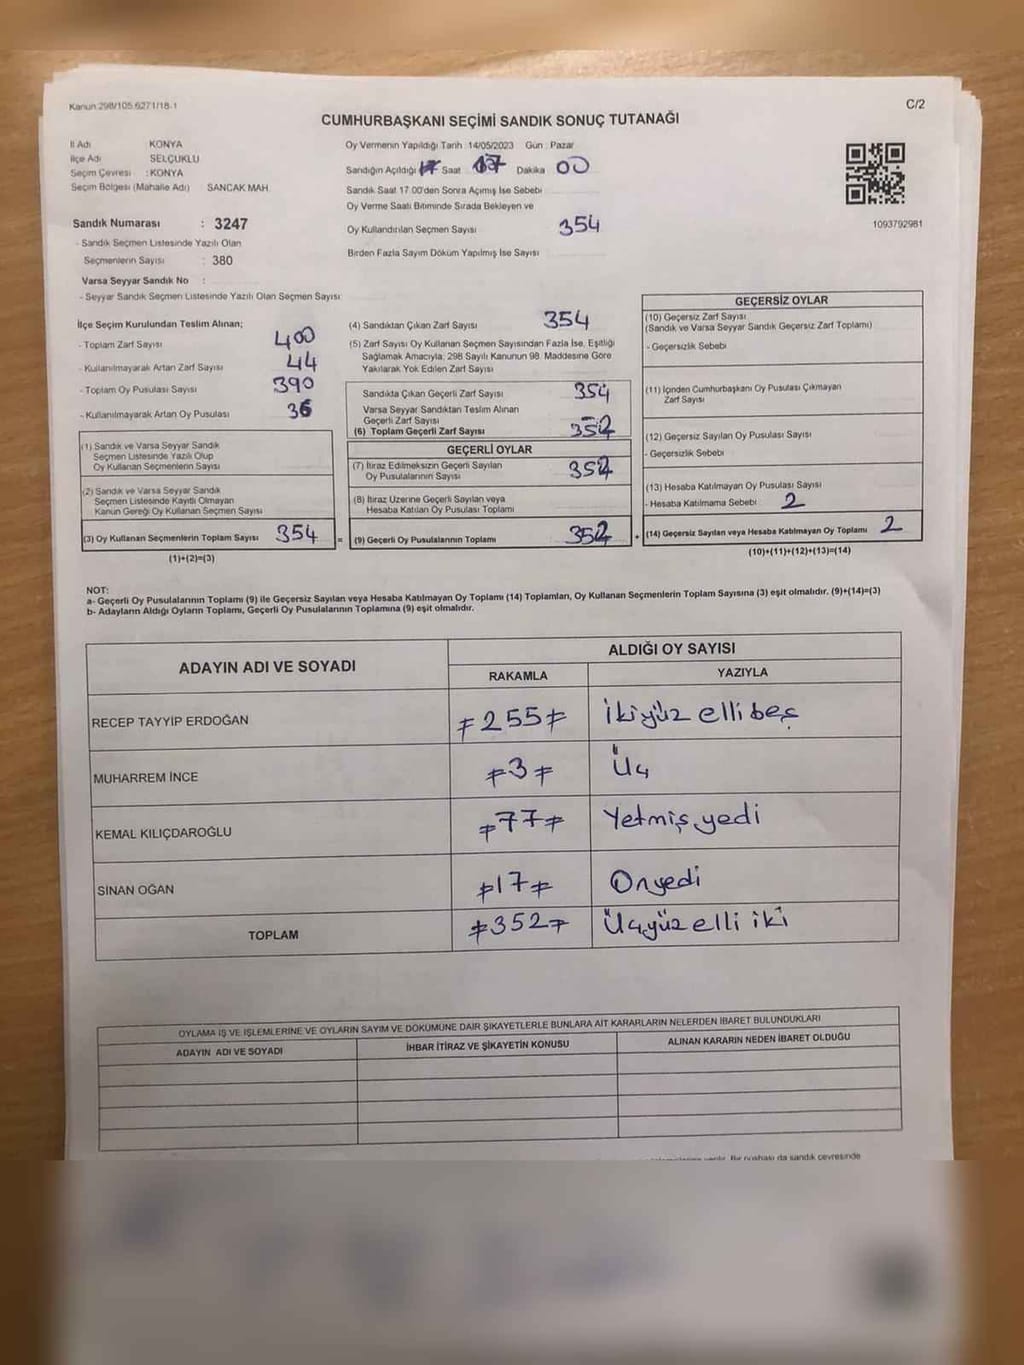 Kanun 298/105.6271/18-1
C/2
CUMHURBAŞKANI SEÇİMİ SANDIK SONUÇ TUTANAĞI
İl Adı KONYA
İlçe Adı SELÇUKLU
Seçim Çevresi : KONYA
Seçim Bölgesi (Mahalle Adı) SANCAK MAH.
Sandık Numarası : 3247
- Sandık Seçmen Listesinde Yazılı Olan
Seçmenlerin Sayısı : 380
Varsa Seyyar Sandık No :
- Seyyar Sandık Seçmen Listesinde Yazılı Olan Seçmen Sayısı:
Oy Vermenin Yapıldığı Tarih : 14/05/2023 Gün : Pazar
Sandığın Açıldığı Saat 17 Dakika 00
Sandık Saat 17.00'den Sonra Açımış İse Sebebi
Oy Verme Saati Bitiminde Sırada Bekleyen ve
Oy Kullandırılan Seçmen Sayısı 354
Birden Fazla Sayım Döküm Yapılmış İse Sayısı
1093792981
İlçe Seçim Kurulundan Teslim Alınan;
- Toplam Zarf Sayısı 400
- Kullanılmayarak Artan Zarf Sayısı 44
- Toplam Oy Pusulası Sayısı 390
- Kullanılmayarak Artan Oy Pusulası 36
(1) Sandık ve Varsa Seyyar Sandık
Seçmen Listesinde Yazılı Olup
Oy Kullanan Seçmenlerin Sayısı
(2) Sandık ve Varsa Seyyar Sandık
Seçmen Listesinde Kayıtlı Olmayan
Kanun Gereği Oy Kullanan Seçmen Sayısı
(3) Oy Kullanan Seçmenlerin Toplam Sayısı 354
(1)+(2)=(3)
(4) Sandıktan Çıkan Zarf Sayısı 354
(5) Zarf Sayısı Oy Kullanan Seçmen Sayısından Fazla İse, Eşitliği
Sağlamak Amacıyla; 298 Sayılı Kanunun 98. Maddesine Göre
Yakılarak Yok Edilen Zarf Sayısı
Sandıkta Çıkan Geçerli Zarf Sayısı 354
Varsa Seyyar Sandıktan Teslim Alınan
Geçerli Zarf Sayısı
(6) Toplam Geçerli Zarf Sayısı 352
GEÇERLİ OYLAR
(7) İtiraz Edilmeksizin Geçerli Sayılan
Oy Pusulalarının Sayısı 352
(8) İtiraz Üzerine Geçerli Sayılan veya
Hesaba Katılan Oy Pusulası Toplamı
= (9) Geçerli Oy Pusulalarının Toplamı 352
GEÇERSİZ OYLAR
(10) Geçersiz Zarf Sayısı
(Sandık ve Varsa Seyyar Sandık Geçersiz Zarf Toplamı)
- Geçersizlik Sebebi
(11) İçinden Cumhurbaşkanı Oy Pusulası Çıkmayan
Zarf Sayısı
(12) Geçersiz Sayılan Oy Pusulası Sayısı
- Geçersizlik Sebebi
(13) Hesaba Katılmayan Oy Pusulası Sayısı
- Hesaba Katılmama Sebebi 2
+ (14) Geçersiz Sayılan veya Hesaba Katılmayan Oy Toplamı 2
(10)+(11)+(12)+(13)=(14)
NOT:
a- Geçerli Oy Pusulalarının Toplamı (9) ile Geçersiz Sayılan veya Hesaba Katılmayan Oy Toplamı (14) Toplamları, Oy Kullanan Seçmenlerin Toplam Sayısına (3) eşit olmalıdır. (9)+(14)=(3)
b- Adayların Aldığı Oyların Toplamı, Geçerli Oy Pusulalarının Toplamına (9) eşit olmalıdır.
ADAYIN ADI VE SOYADI ALDIĞI OY SAYISI
RAKAMLA YAZIYLA
RECEP TAYYİP ERDOĞAN 255 İkiyüz elli beş
MUHARREM İNCE 3 Üç
KEMAL KILIÇDAROĞLU 77 Yetmiş yedi
SİNAN OĞAN 17 Onyedi
TOPLAM 352 Üçyüz elli iki
OYLAMA İŞ VE İŞLEMLERİNE VE OYLARIN SAYIM VE DÖKÜMÜNE DAİR ŞİKAYETLERLE BUNLARA AİT KARARLARIN NELERDEN İBARET BULUNDUKLARI
ADAYIN ADI VE SOYADI İHBAR İTİRAZ VE ŞİKAYETİN KONUSU ALINAN KARARIN NEDEN İBARET OLDUĞU
Bir nüshası da sandık çevresinde